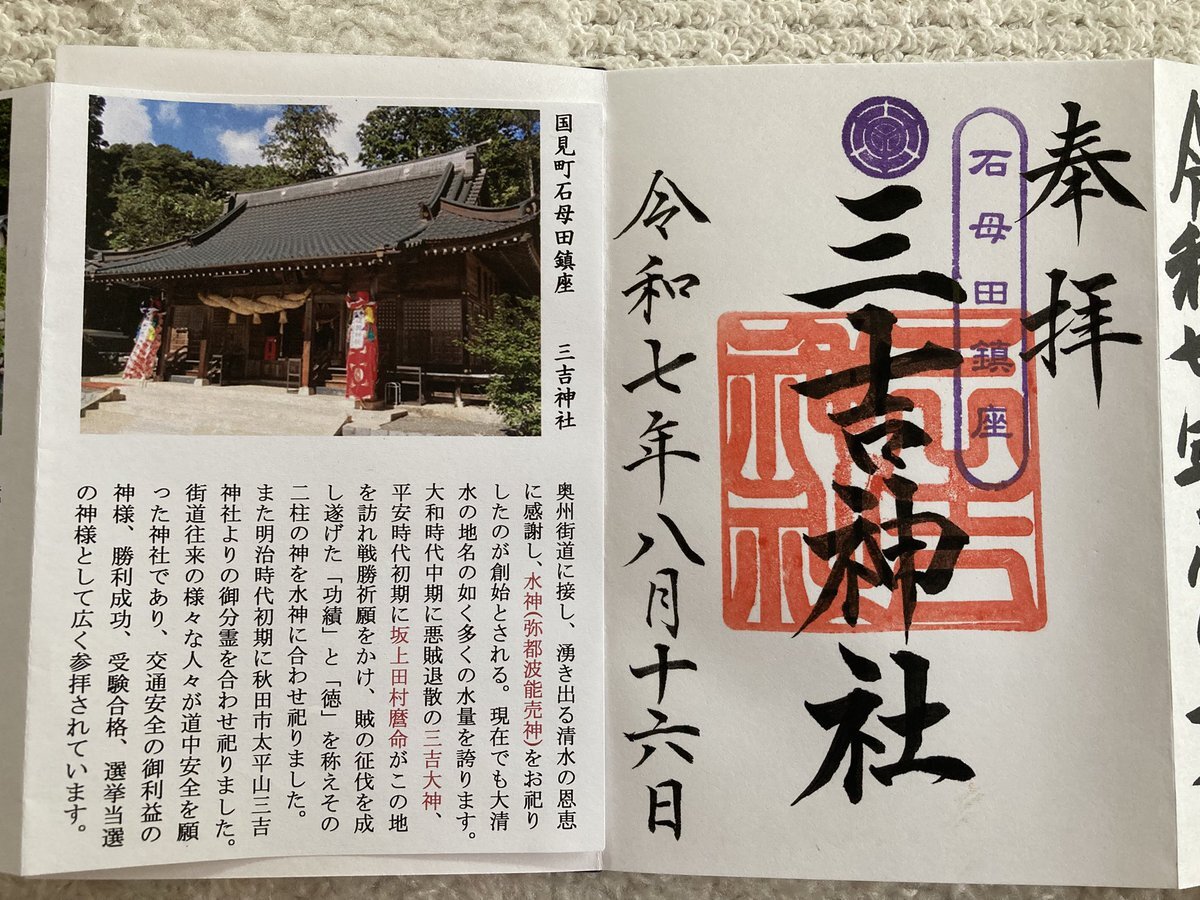 奉拝
石母田鎮座
三吉神社
令和七年八月十六日
国見町石母田鎮座　三吉神社
奥州街道に接し、湧き出る清水の恩恵
に感謝し、水神(弥都波能売神)をお祀り
したのが創始とされる。現在でも大清
水の地名の如く多くの水量を誇ります。
大和時代中期に悪賊退散の三吉大神、
平安時代初期に坂上田村麿命がこの地
を訪れ戦勝祈願をかけ、賊の征伐を成
し遂げた「功績」と「徳」を称えその
二柱の神を水神に合わせ祀りました。
また明治時代初期に秋田市太平山三吉
神社よりの御分霊を合わせ祀りました。
街道往来の様々な人々が道中安全を願
った神社であり、交通安全の御利益の
神様、勝利成功、受験合格、選挙当選
の神様として広く参拝されています。